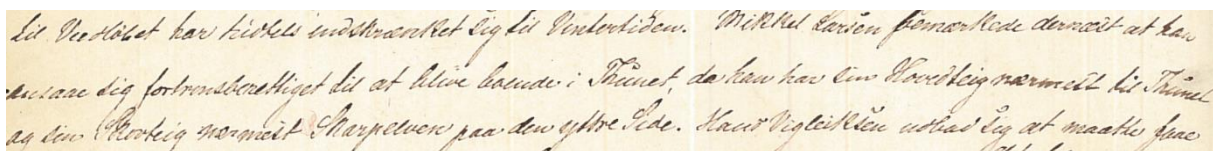 til Vedløbet har tildels indskrænket sig til Vintertiden. Mikkel Larsen bemærkede dernæst at han
ansaae sig fortrinsberettiget til at blive boende i Thunet, da han har sin Hovedteig nærmest til Thunet
og sin Skovteig nærmest Skarpelven paa den yttre Side. Hans Vigleiksen udbad sig at maatte faae